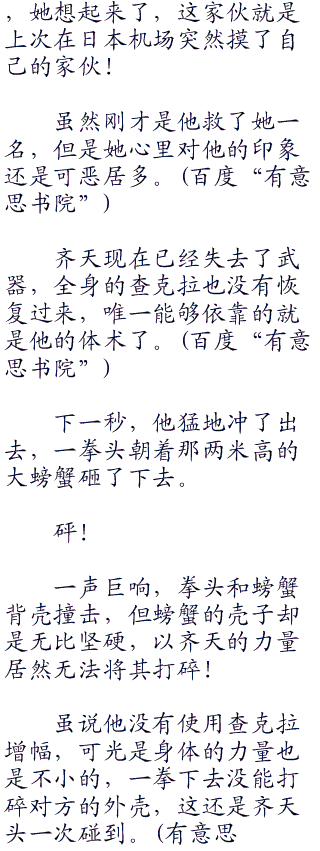 ，她想起来了，这家伙就是
上次在日本机场突然摸了自
己的家伙！
虽然刚才是他救了她一
名，但是她心里对他的印象
还是可恶居多。(百度“有意
思书院”)
齐天现在已经失去了武
器，全身的查克拉也没有恢
复过来，唯一能够依靠的就
是他的体术了。(百度“有意
思书院”)
下一秒，他猛地冲了出
去，一拳头朝着那两米高的
大螃蟹砸了下去。
砰！
一声巨响，拳头和螃蟹
背壳撞击，但螃蟹的壳子却
是无比坚硬，以齐天的力量
居然无法将其打碎！
虽说他没有使用查克拉
增幅，可光是身体的力量也
是不小的，一拳下去没能打
碎对方的外壳，这还是齐天
头一次碰到。(有意思